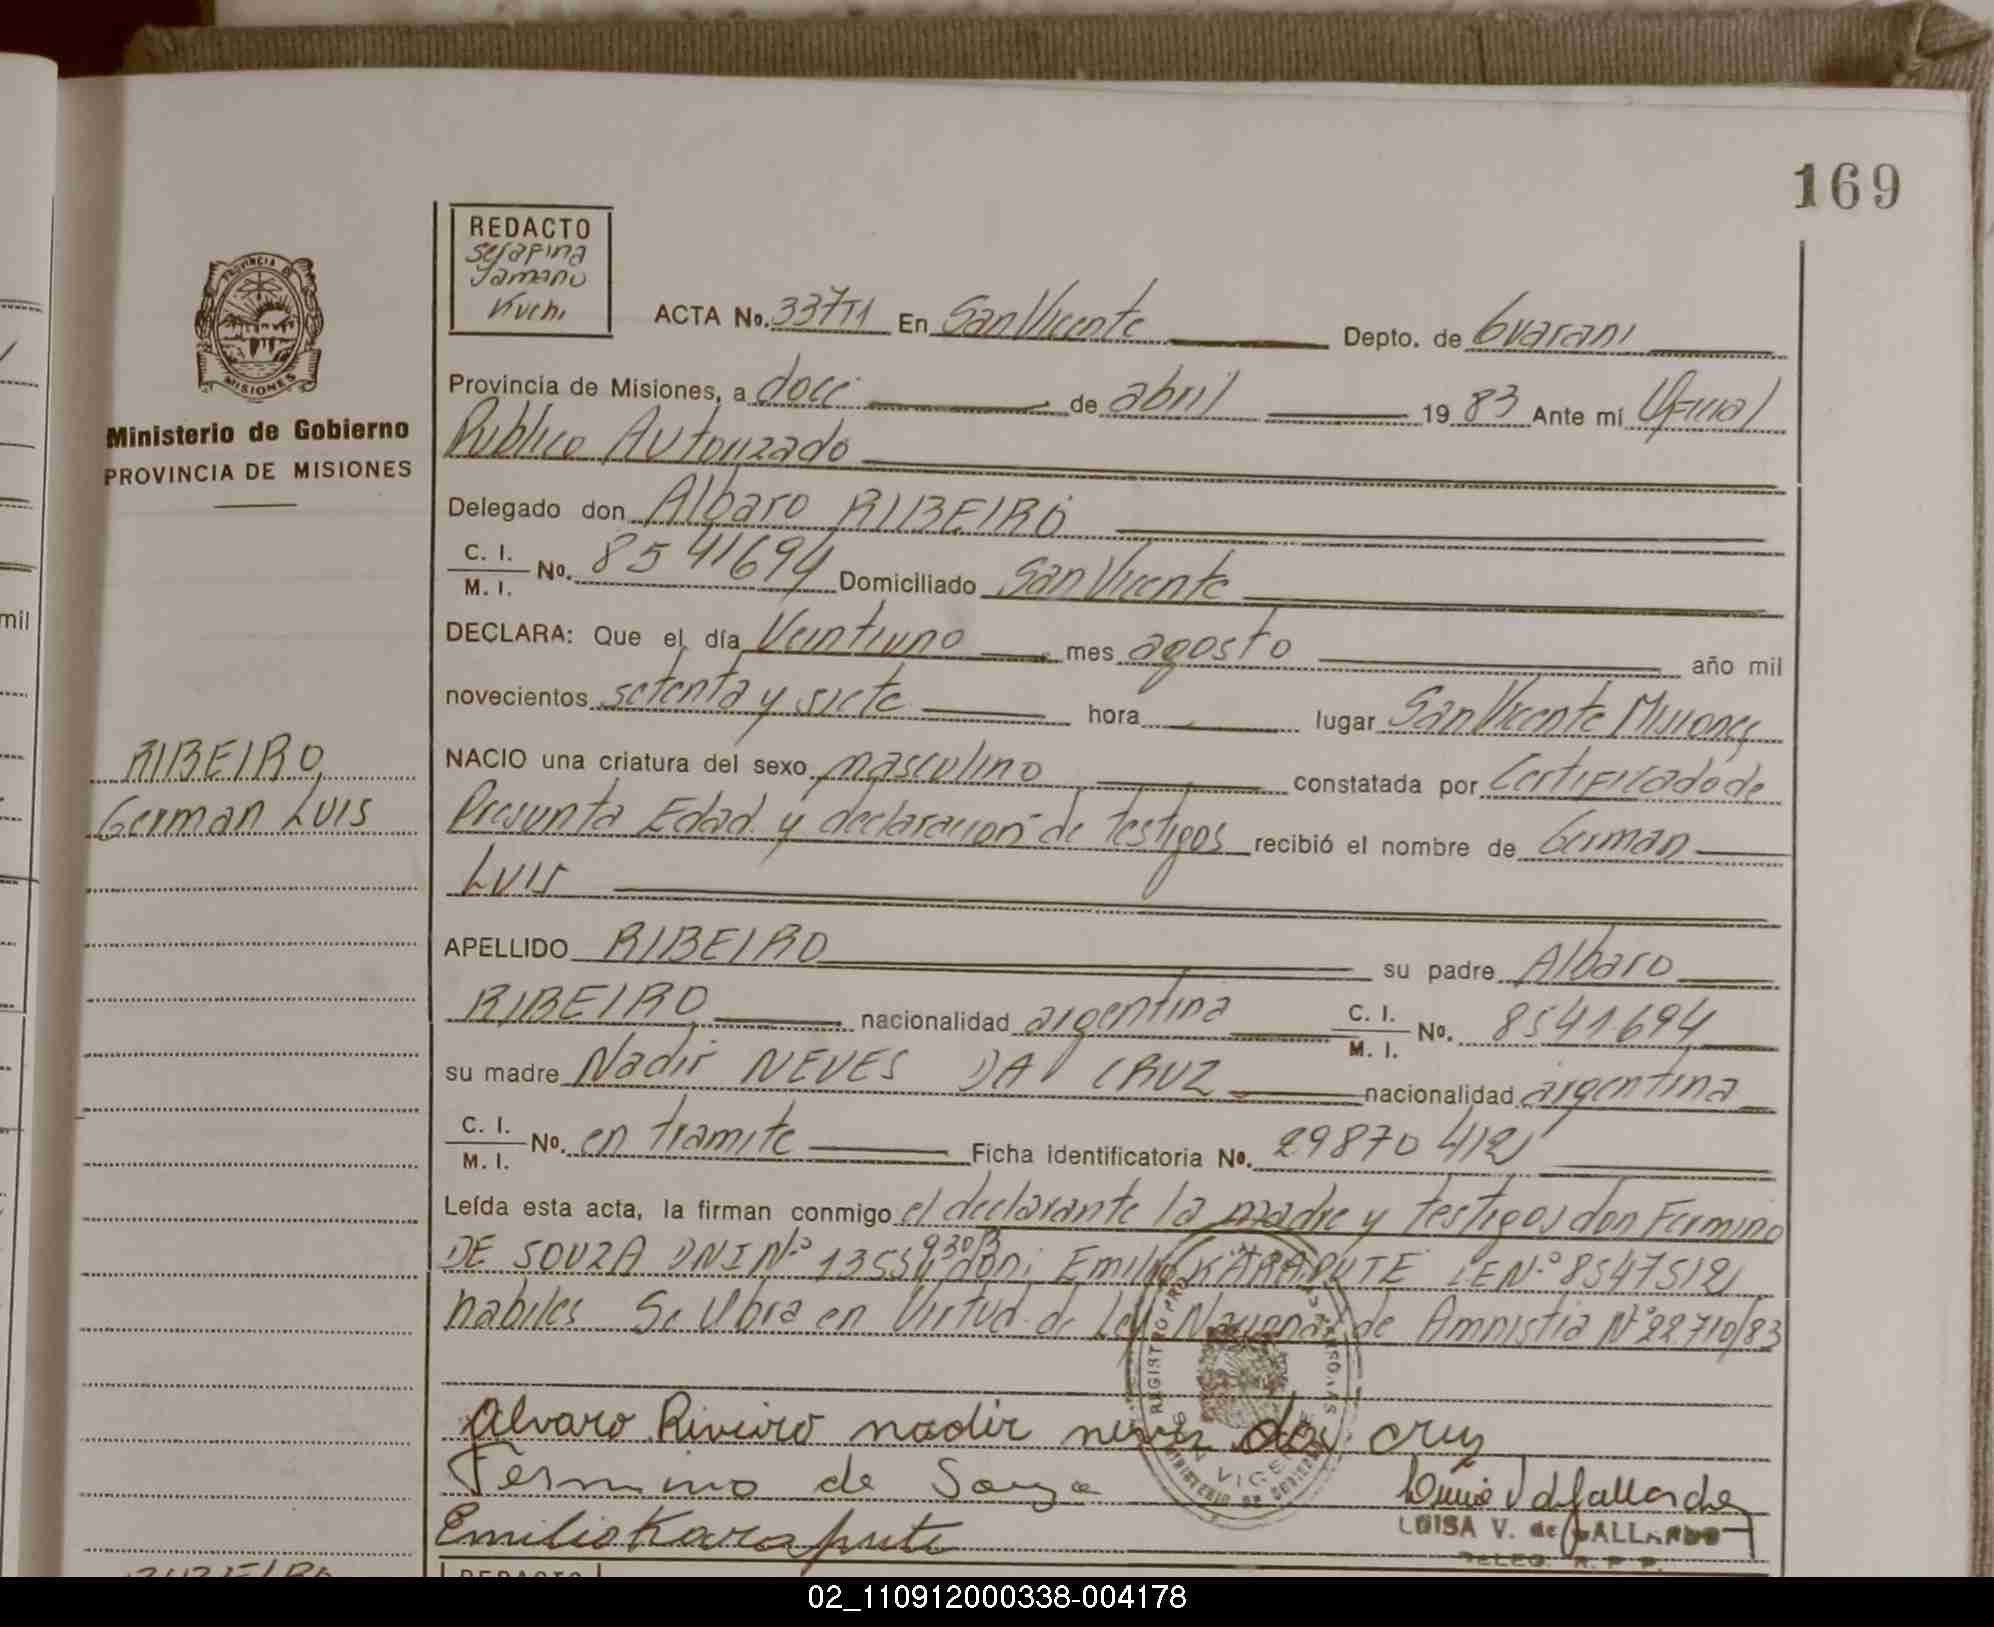 169
REDACTO
Serafina
Yamano
Kuchi
PROVINCIA DE
MISIONES
Ministerio de Gobierno
PROVINCIA DE MISIONES
ACTA No. En San Vicente Depto. de Guarani
Provincia de Misiones, a doce de abril 19 83 Ante mí Oficial
Publico Autorizado
Delegado don Albaro RIBEIRO
C. I.
M. I. No. 8541694 Domiciliado San Vicente
DECLARA: Que el día Veintiuno mes agosto año mil
novecientos setenta y siete hora lugar San Vicente Misiones
NACIO una criatura del sexo masculino constatada por Certificado de
Presunta Edad y declaracion de testigos recibió el nombre de German
Luis
RIBEIRO
German Luis
APELLIDO RIBEIRO su padre Albaro
RIBEIRO nacionalidad argentina C. I.
M. I. No. 8541694
su madre Nadir NEVES DA CRUZ nacionalidad argentina
C. I.
M. I. No. en tramite Ficha identificatoria No. 29870412
Leída esta acta, la firman conmigo el declarante la madre y testigos don Fermino
DE SOUZA DNI N.º don; Emilio KARAPUTE LE N.º 8547512
habiles Se Labra en Virtud de Ley Nacional de Amnistia Nº 22710/83
Alvaro Riveiro nadir neves da cruz
Fermino de Souza
Emilio Karapute
LUISA V. de GALLARDO
DELEG. R. P. P.
mil
REDACTO
02_110912000338-004178